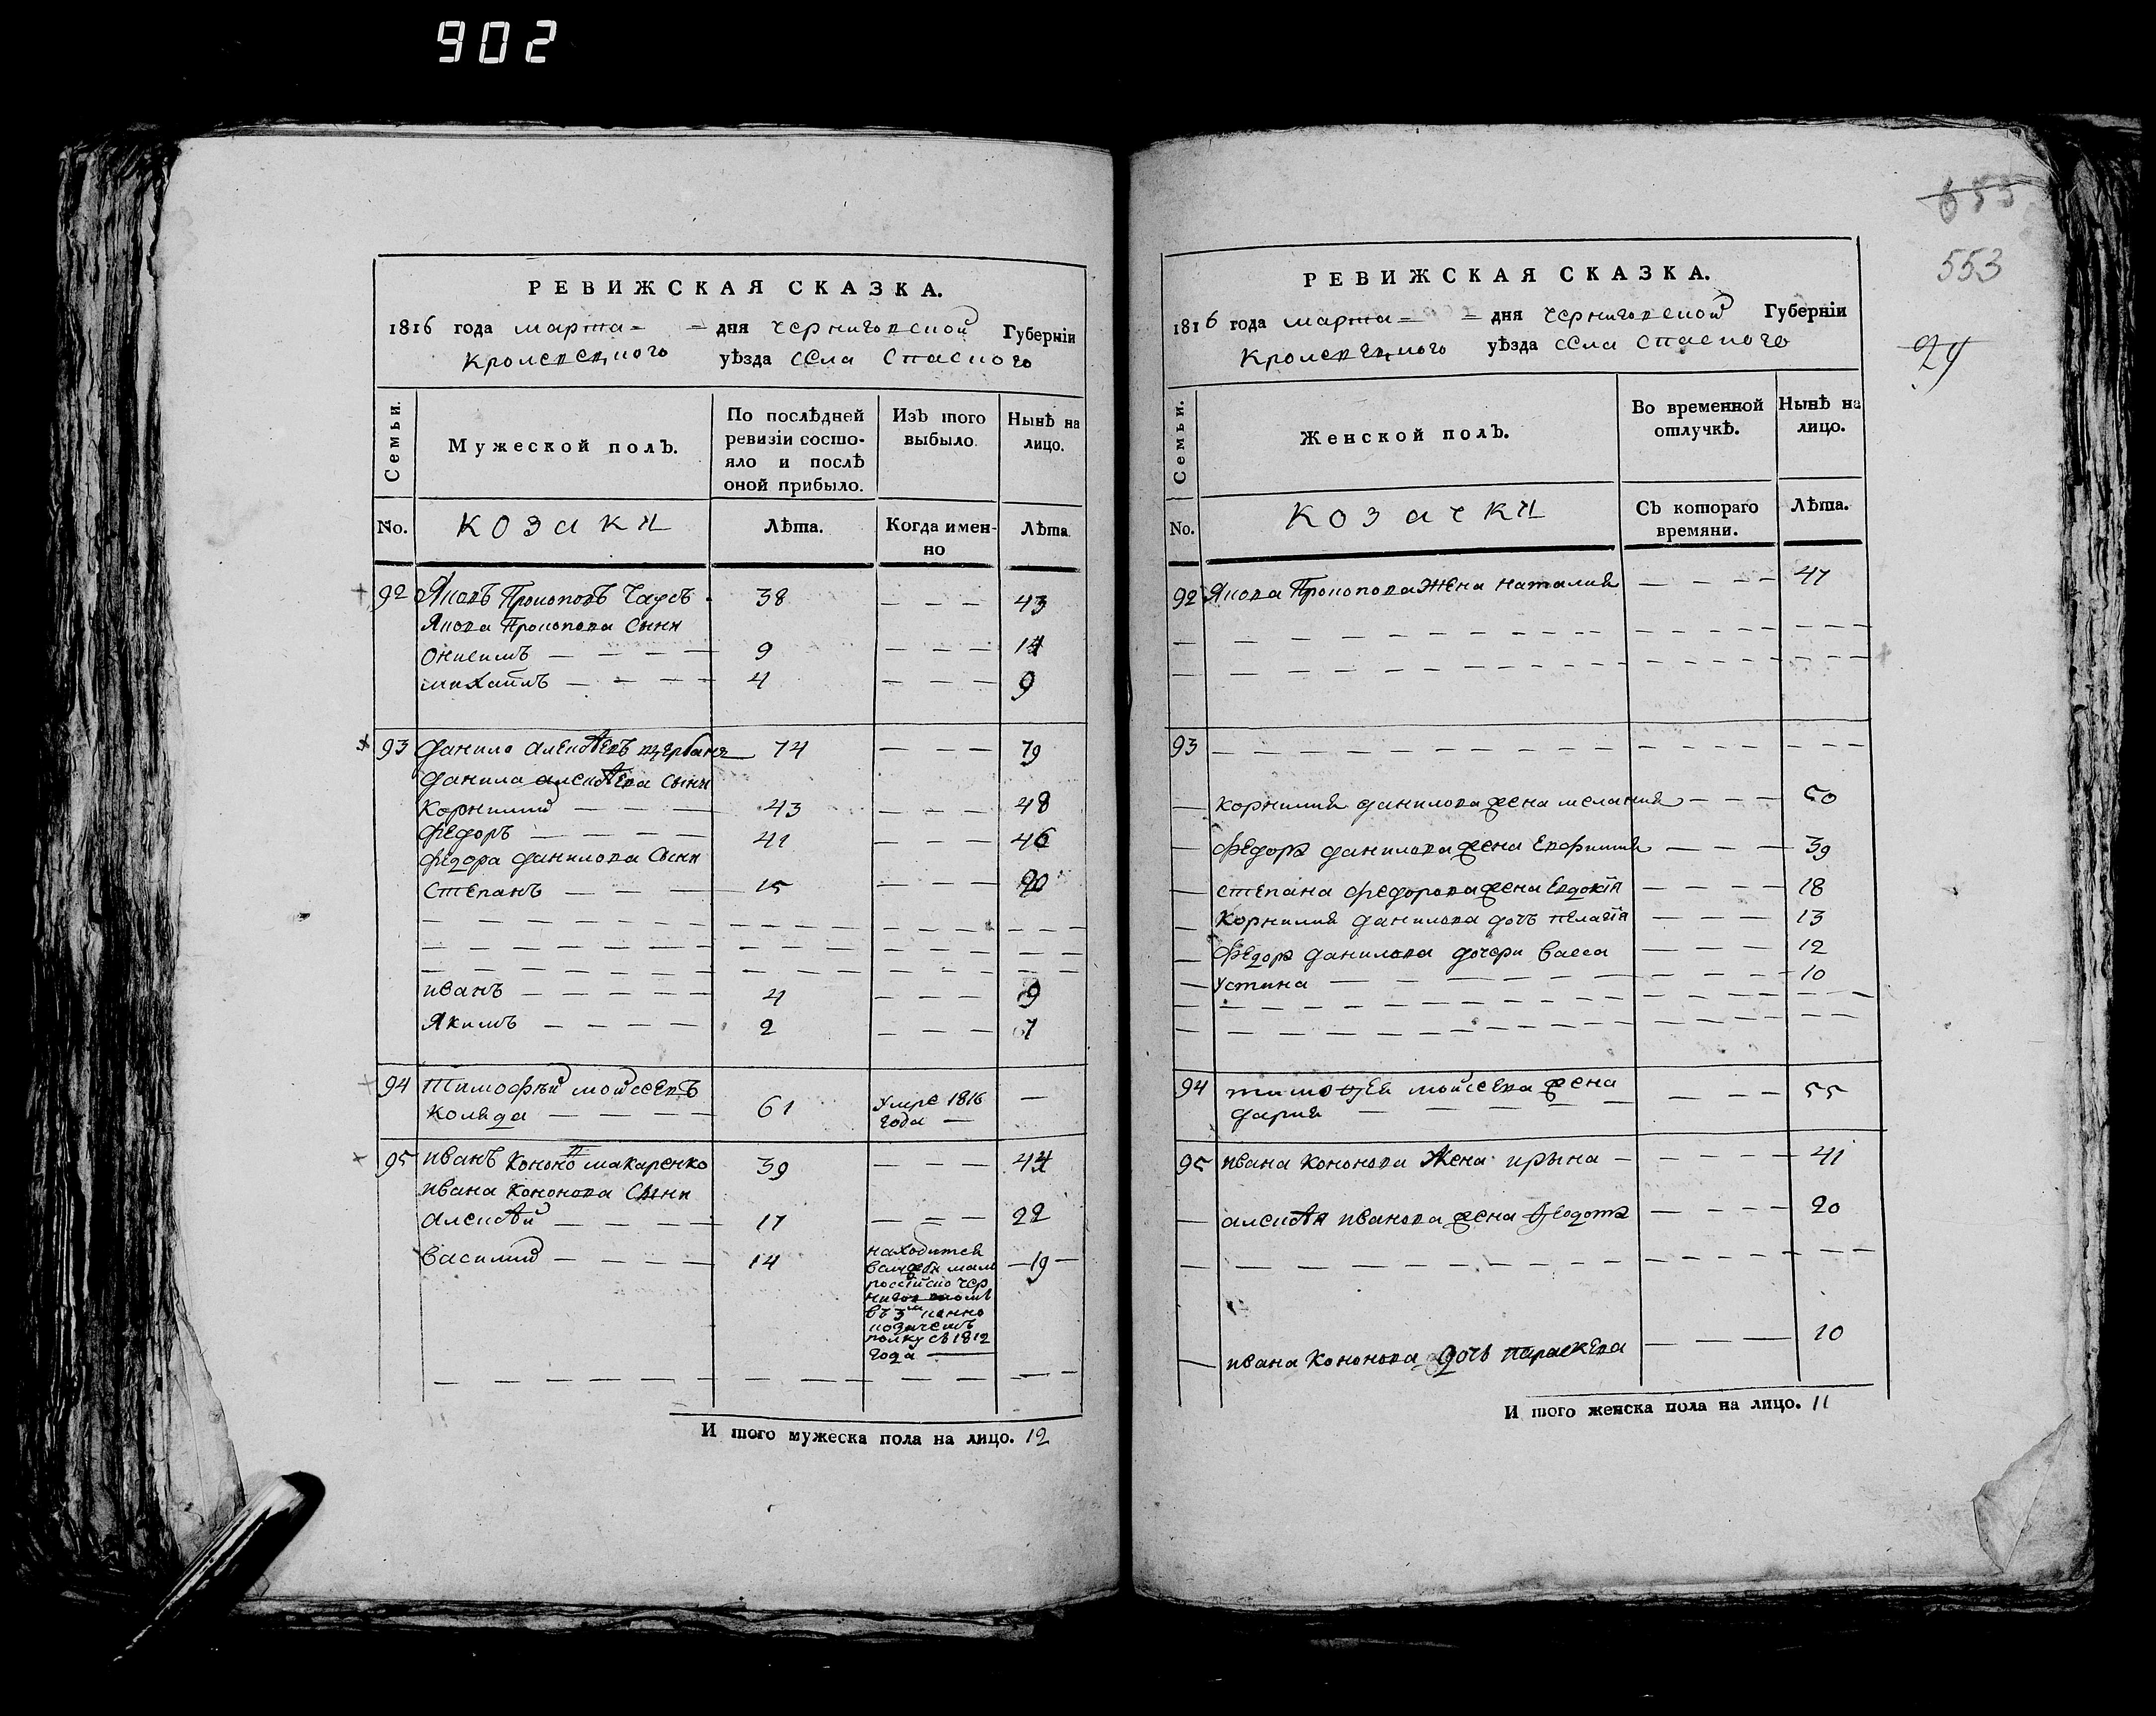 902
653
553
29
РЕВИЖСКАЯ СКАЗКА.
1816 года марта - - дня Черниговской Губерніи
Кролевецкого уѣзда села Спаского
Семьи. Мужеской полЪ. По послѣдней ревизіи состояло и послѣ оной прибыло. ИзЪ того выбыло. Нынѣ на лицо.
No. козаки Лѣта. Когда именно Лѣта.
92 Яковъ Прокоповъ Чаусъ 38 — — — 43
Якова Прокопова Сыни
Онисимъ — — — — 9 — — — 14
михаилъ — — — — 4 — — — 9
93 Данило алексѣевъ щербань 74 — — — 79
Данила алексѣева Сыни
Корнилий — — — 43 — — — 48
Федоръ — — — — 41 — — — 46
Федора Данилова Сыни
Степанъ — — — 15 — — — 20
иванъ — — — — — 4 — — — 9
Якимъ — — — — 2 — — — 7
94 Тимофѣй мойсеевъ
Коляда — — — — 61 Умре 1816 —
года —
95 иванъ Кононов макаренко 39 — — — 44
ивана Кононова Сыни
алексѣй — — — — 17 — — — 22
Василий — — — — 14 находится — 19 —
въ 3м конно
козачемъ
полку съ 1812
года —
И того мужеска пола на лицо. 12
РЕВИЖСКАЯ СКАЗКА.
1816 года марта - - дня Черниговской Губерніи
Кролевецкого уѣзда села Спаского
Семьи. Женской полЪ. Во временной отлучкѣ. Нынѣ на лицо.
No. козачки СЪ котораго времяни. Лѣта.
92 Якова Прокопова Жена Наталия — — — — 47
93 — — — — — — — —
— Корнилия Данилова жена мелания — — — 50
— Федора Данилова жена Евфимия — — — 39
— Степана Федорова жена Евдокія — — — — 18
— Корнилия Данилова дочь пелагія — — — 13
— Федора Данилова дочери Васса — — — 12
— Устина — — — — — — — 10
94 тимофея мойсеева жена — — — 55
дария — — — — —
95 ивана Кононова Жена ирына — — — — — 41
— алексѣя иванова жена Феодота — — — — 20
— ивана Кононова дочь параскева — — — 10
И того женска пола на лицо. 11